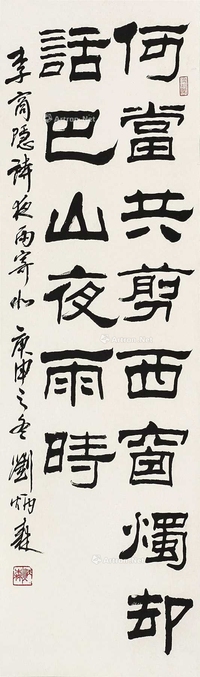 何當共剪西窗燭却
話巴山夜雨時
李商隱詩夜雨寄北 庚申之冬 劉炳森